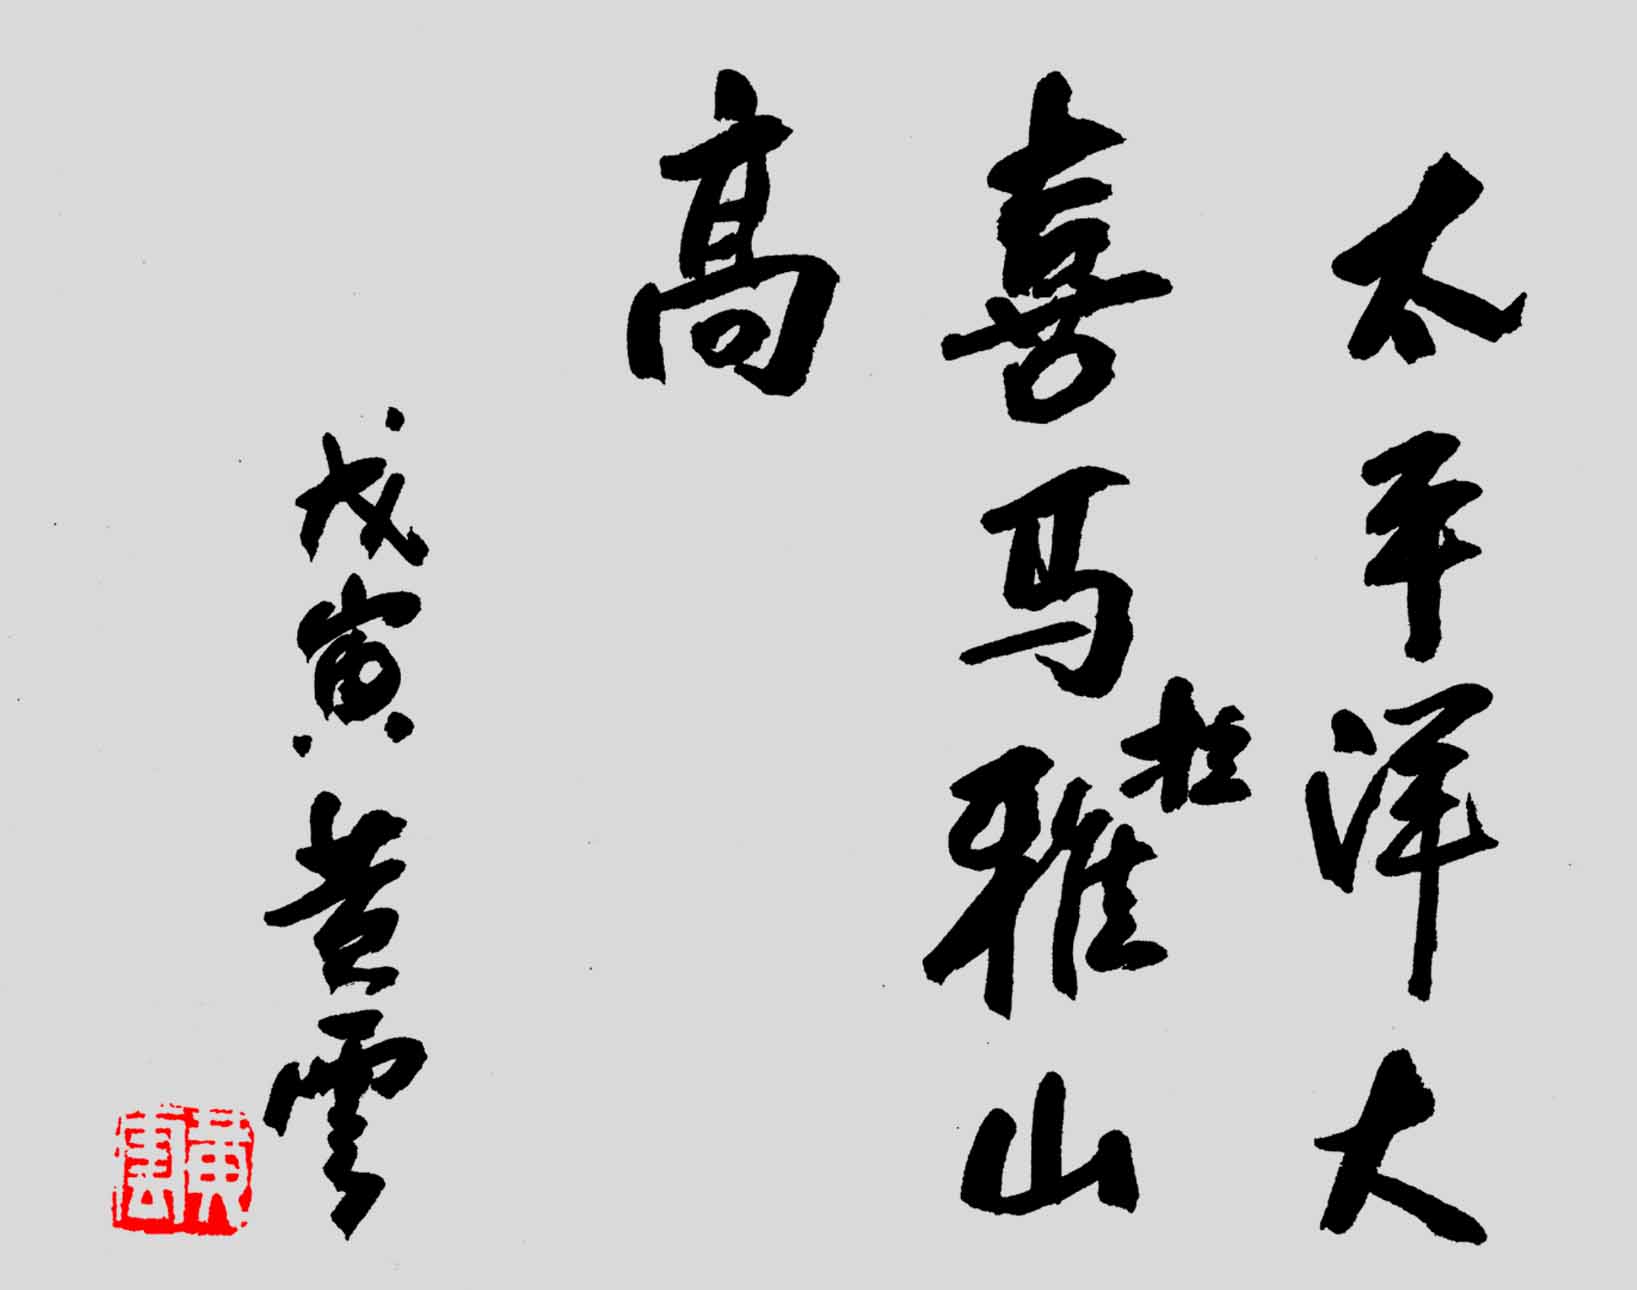 太平洋大
喜马拉雅山
高
戊寅黄云
黄云